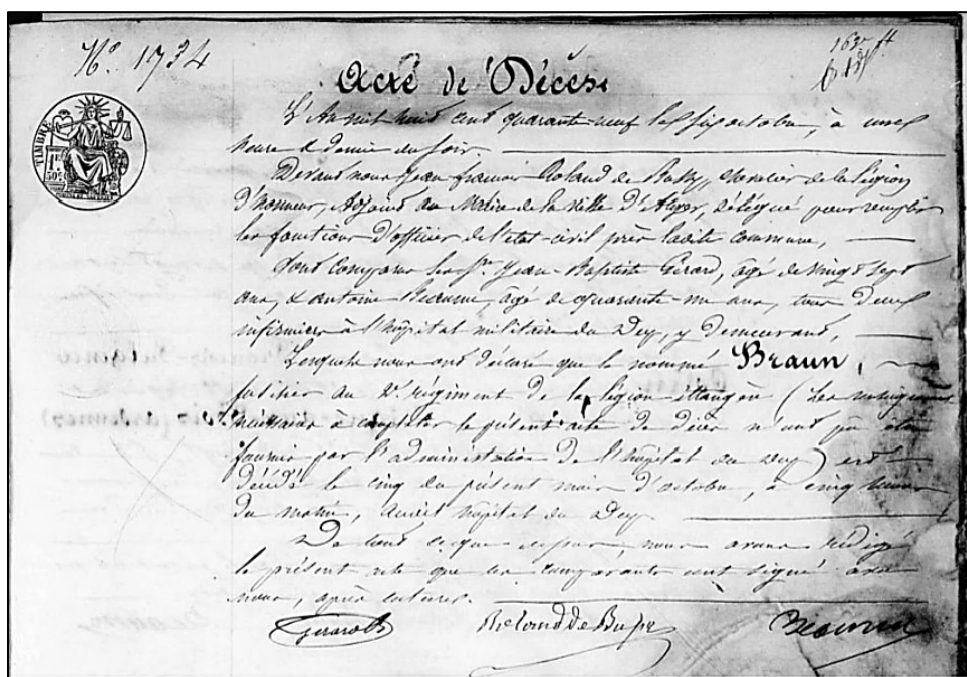 N.º 1734
Acte de Décès
L'An mil huit cent quarante-neuf le six octobre, à une
heure & demie du soir,
Devant nous Jean François Roland de Bussy, chevalier de la Légion
d'honneur, Adjoint au Maire de la Ville d'Alger, délégué pour remplir
les fonctions d'officier de l'état-civil près ladite commune,
Sont comparus les Srs. Jean-Baptiste Gérard, âgé de vingt sept
ans, & Antoine Béaume, âgé de quarante-un ans, tous deux
infirmiers à l'hôpital militaire du Dey, y demeurant,
Lesquels nous ont déclaré que le nommé Braun,
fusilier au 2e régiment de la légion étrangère (Les renseignements
nécessaires à compléter le présent acte de décès n'ont pu être
fournis par l'administration de l'hôpital du Dey) est
décédé le cinq du présent mois d'octobre, à cinq heures
du matin, audit hôpital du Dey.
De tout ce que dessus, nous avons rédigé
le présent acte que les comparants ont signé avec
nous, après lecture.
Gerard Roland de Bussy
TIMBRE
50c